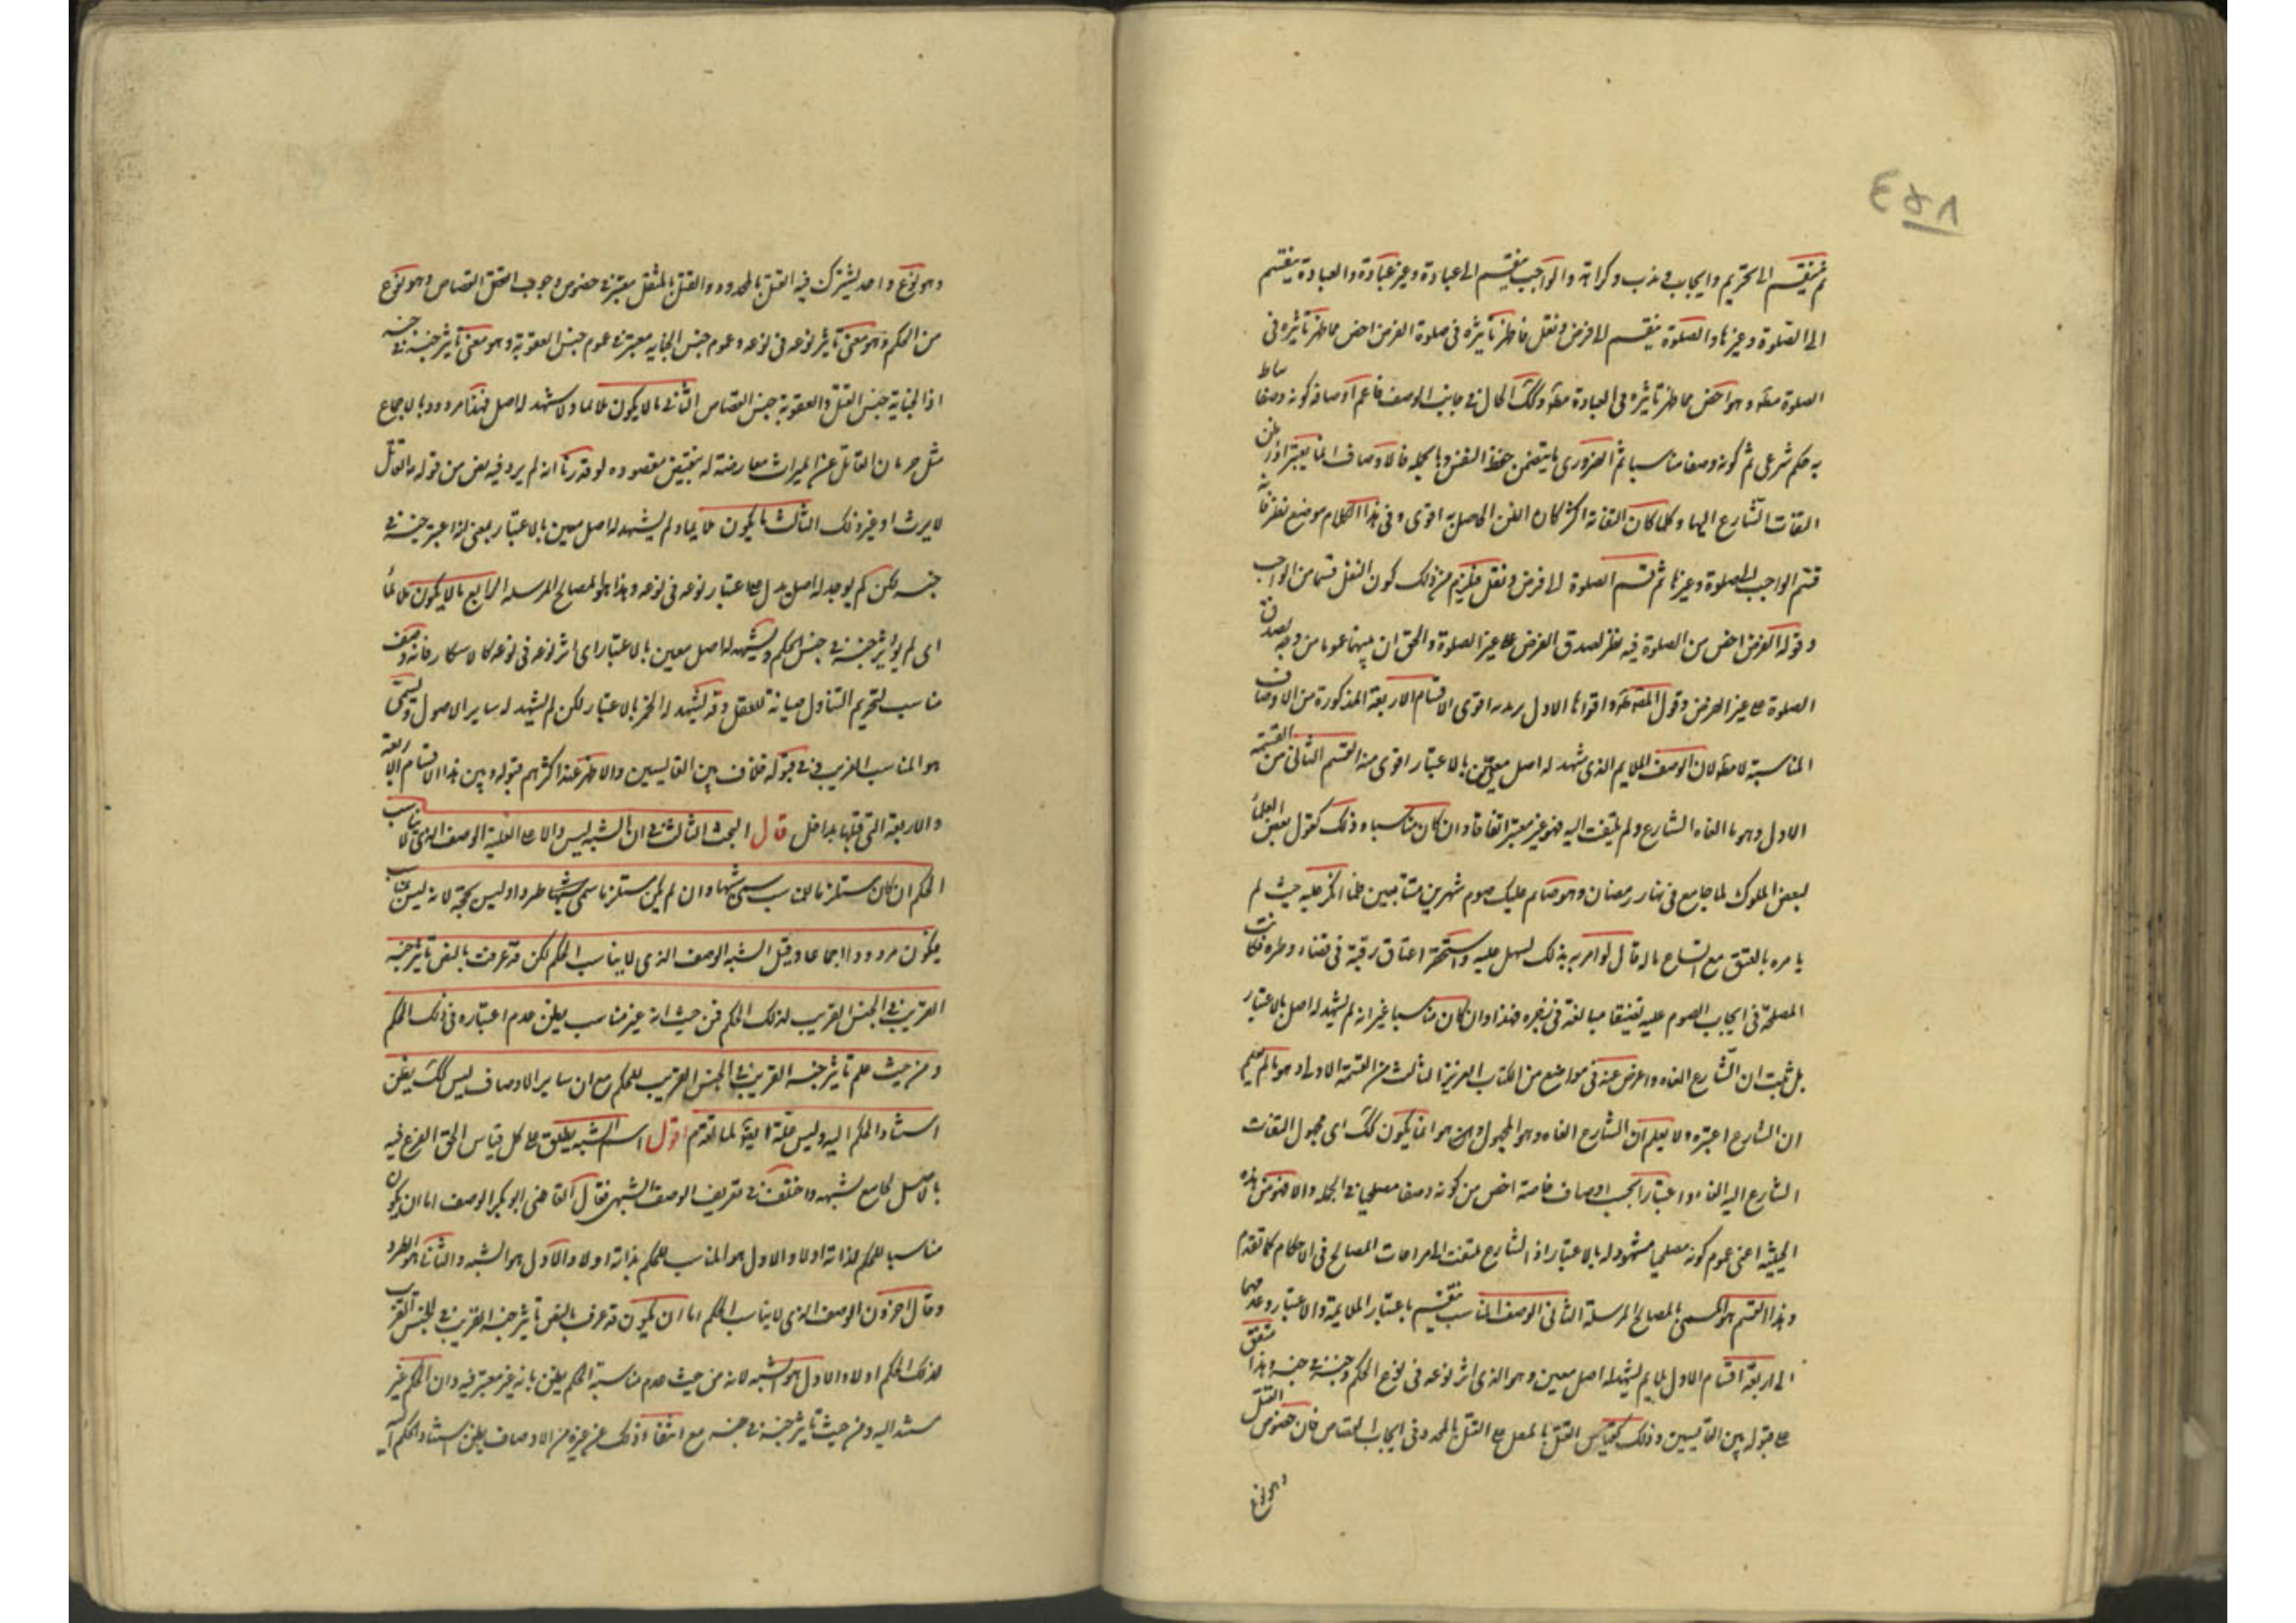 ٤٥٨
ثم ينقسم الى تحريم وايجاب وندب وكراهة والواجب ينقسم الى عبادة وغير عبادة والعبادة ينقسم
الى الصلوة وغيرها والصلوة ينقسم الى فرض ونفل فاظهر تأثيره فى صلوة الفرض اخص مما ظهر تأثيره فى
الصلوة مطه وهو اخص مما ظهر تاثيره فى العبادة مطه وكك الحال فى جانب الوصف فاعم اوصافه كونه وصفا يناط
به حكم شرعى ثم كونه وصفا مناسبا ثم الضرورى ما يتضمن حفظ النفس وبالجمله فالاوصاف انما يعتبر اذا ظن
التفات الشارع اليها وكلما كان التفاته اكثر كان الظن الحاصل به اقوى وفى هذا الكلام موضع نظر فانه
قسم الواجب الى الصلوة وغيرها ثم قسم الصلوة الى فرض ونفل فيلزم من ذلك كون النفل قسما من الواجب
وقوله الفرض اخص من الصلوة فيه نظر لصدق الفرض على غير الصلوة والحق ان بينهما عموما من وجه لصدق
الصلوة على غير الفرض وقول المص طه واقواها الاول يريد به اقوى الاقسام الاربعة المذكورة من الاوصاف
المناسبة لا مطه لان الوصف الملايم الذى شهد له اصل معين بالاعتبار اقوى منه القسم الثانى من القسمة
الاول وهو ما الغاه الشارع ولم يلتفت اليه فهو غير معتبر اتفاقا وان كان مناسبا وذلك كقول بعض العلماء
لبعض الملوك لما جامع فى نهار رمضان وهو صايم عليك صوم شهرين متتابعين فلما انكر عليه حيث لم
يامره بالعتق مع اتساع ماله قال لو امرته بذلك لسهل عليه واستحقر اعتاق رقبة فى قضاء وطره فكانت
المصلحة فى ايجاب الصوم عليه تضييقا مبالغة فى زجره فهذا وان كان مناسبا غير انه لم يشهد له اصل بالاعتبار
بل ثبت ان الشارع الغاه واعرض عنه فى مواضع من الكتاب العزيز الثالث من القسمة الاولى وهو ما لم يعلم
ان الشارع اعتبره ولا يعلم ان الشارع الغاه وهو المجهول وهو انما يكون كك اى مجهول التفات
الشارع اليه الغاء واعتبارا بحسب اوصاف خاصة اخص من كونه وصفا مصلحيا فى الجمله والا فهو من هذه
الحيثية اعنى عموم كونه مصلحيا مشهود له بالاعتبار اذ الشارع ملتفت الى مراعات المصالح فى الاحكام كما تقدم
وهذا القسم هو المسمى بالمصالح المرسلة الثانى الوصف المناسب ينقسم باعتبار الملايمة والاعتبار وعدمهما
الى اربعة اقسام الاول ملايم يشهد له اصل معين وهو الذى اثر نوعه فى نوع الحكم وجنسه فى جنسه وهذا متفق
على قبوله بين القايسين وذلك كقياس القتل بالمثقل على القتل بالمحدد فى ايجاب القصاص فان خصوص القتل
وهو نوع
وهو نوع واحد يشترك فيه القتل بالمحدود والقتل بالمثقل معتبر فى خصوص وجوب القتل القصاص وهو نوع
من الحكم وهو معنى تاثير نوعه فى نوعه وعموم جنس الجنايه معتبر فى عموم جنس العقوبة وهو معنى تاثير جنسه فى جنسه
اذ الجناية جنس القتل والعقوبة جنس القصاص الثانى ما لا يكون ملايما ولا شهد له اصل فهذا مردود بالاجماع
مثل حرمان القاتل عن الميراث معارضة له بنقيض مقصوده لو قدرنا انه لم يرد فيه نص من قوله ع القاتل
لا يرث او غير ذلك الثالث ما يكون ملايما ولم يشهد له اصل معين بالاعتبار بمعنى انه اعتبر جنسه فى
جنسه لكن لم يوجد له اصل يدل على اعتبار نوعه فى نوعه وهذا هو المصالح المرسله الرابع ما لا يكون ملائما
اى لم يؤثر جنسه فى جنس الحكم ويشهد له اصل معين بالاعتبار اى اثر نوعه فى نوعه كالاسكار فانه وصف
مناسب لتحريم التناول صيانة للعقل وقد يشهد له الخمر بالاعتبار لكن لم يشهد له ساير الاصول ويسمى
هو المناسب الغريب فى قبوله خلاف بين القايسين والاظهر عند اكثرهم قبوله وبين هذا الاقسام الاربعة
والاربعة التى قبلها تداخل قال البحث الثالث فى ان الشبه ليس دالا على العلية الوصف الذى لا يناسب
الحكم ان كان مستلزما للمناسب سمى شبها وان لم يكن مستلزما سمى طردا وليس بحجة لانه ليس بمناسب
فيكون مردودا اجماعا وقيل الشبه الوصف الذى لا يناسب الحكم لكن قد عرفت بالنص تاثير جنسه
القريب فى الجنس القريب لذلك الحكم فمن حيث انه غير مناسب يظن عدم اعتباره فى ذلك الحكم
ومن حيث علم تاثير جنسه القريب فى الجنس القريب للحكم مع ان ساير الاوصاف ليس كك يظن
استناد الحكم اليه وليس علة ايضا لما تقدم اقول اسم الشبه يطلق على كل قياس الحق الفرع فيه
بالاصل لجامع يشبهه واختلف فى تعريف الوصف الشبهى فقال القاضى ابو بكر الوصف اما ان يكون
مناسبا للحكم لذاته اولا والاول هو المناسب للحكم بذاته اولا والاول هو الشبه والثانى هو الطرد
وقال اخرون الوصف الذى لا يناسب الحكم اما ان يكون قد عرف بالنص تاثير جنسه القريب فى الجنس القريب
لذلك الحكم اولا والاول هو الشبه لانه من حيث عدم مناسبة الحكم يظن بانه غير معتبر فيه وان الحكم غير
مستند اليه ومن حيث تاثير جنسه فى جنسه مع انتفاء ذلك عن غيره من الاوصاف يظن استناد الحكم اليه